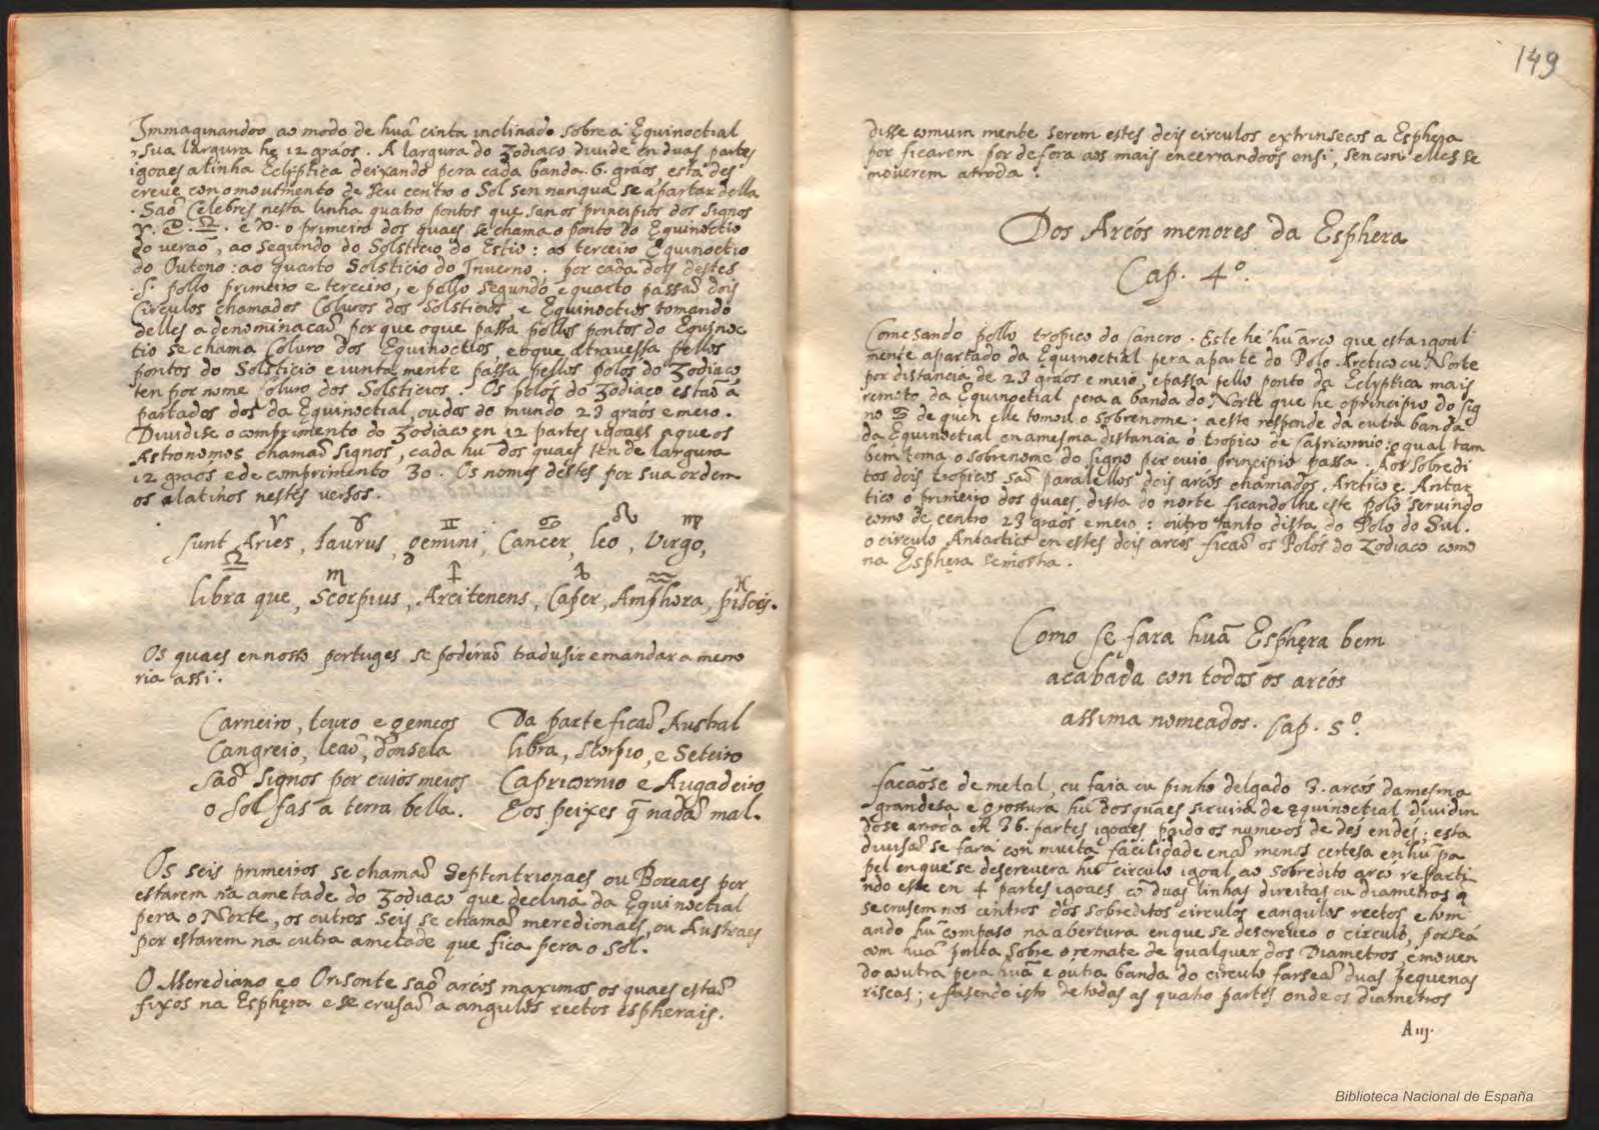 Immaginandoo ao modo de huã cinta inclinado sobre a Equinoctial
, sua largura he 12 graós. A largura do Zodiaco divide en duas partes
igoaes a linha Eclyptica deixando pera cada banda 6. graós, esta des
creve con o movimento de seu centro o Sol sen nunqua se apartar della
. Saõ Celebres nesta linha quatro pontos que san os principios dos signos
♈. ♋. ♎. e ♑. o primeiro dos quaes se chama o ponto do Equinoctio
do veraõ, ao segundo do Solsticio do Estio: ao terceiro Equinoctio
do Outono: ao quarto Solsticio do Inverno. por cada dois destes
. S. pollo primeiro e terceiro, e pollo segundo e quarto passaõ dois
Circulos chamados Coluros dos Solsticios, e Equinoctios tomando
delles a denominacaõ por que o que passa pollos pontos do Equinoc
tio se chama Coluro dos Equinoctios, e o que atravessa pellos
pontos do Solsticio e iuntamente passa pellos polos do Zodiaco
ten por nome Coluro dos Solsticios. Os polos do Zodiaco estaõ a
partados dos da Equinoctial, ou dos do mundo 23 graós e meio.
Dividise o comprimento do Zodiaco en 12 partes igoaes a que os
Astronomos chamaõ signos, cada hũ dos quaes ten de largura
12 graós e de comprimento 30. Os nomes destes por sua orden
os a latinos nestes versos.
♈ ♉ ♊ ♋ ♌ ♍
Sunt Aries, taurus, gemini, Cancer, leo, Virgo,
♎ ♏ ♐ ♑ ♒ ♓
libra que, Scorpius, Arcitenens, Caper, Amphora, pisces.
Os quaes en nosso portuges se poderaõ tradusir e mandar a memo
ria assi.
Carneiro, touro e gemeos
Cangreio, leaõ, donsela
Saõ signos por cuios meios
o sol fas a terra bella.
Da parte ficaõ Austral
libra, Scorpio, e Seteiro
Capricornio e Augadeiro
E os peixes q̃ nadaõ mal.
Os seis primeiros se chamaõ Septentrionaes ou Boreaes por
estarem na ametade do Zodiaco que declina da Equinoctial
pera o Norte, os outros seis se chamaõ meredionaes, ou Austraes
por estarem na outra ametade que fica pera o sol.
O Merediano e o Orisonte saõ arcós maximos os quaes estaõ
fixos na Esphęra e se crusaõ a angulos rectos espherais.
149
disse comum mente serem estes dois circulos extrinsecos a Esphęra
por ficarem por defora aos mais encerrandoos ensi, sen con elles se
moverem a troda.
Dos Arcós menores da Esphera
Cap. 4º.
Comesando pollo tropico do Cancro. Este he hũ arco que esta igoal
mente apartado da Equinoctial pera a parte do Polo Arctico ou Norte
por distancia de 23 graós e meio, e passa pello ponto da Eclyptica mais
remoto da Equinoctial pera a banda do Norte que he o principio do sig
no ♋ de quen elle tomou o sobrenome: a este responde da outra banda
da Equinoctial en a mesma distancia o tropico de Capricornio: o qual tam
bem toma o sobrenome do signo por cuio principio passa. Aos sobredi
tos dois tropicos saõ paralellos dois arcós chamados Arctico e Antar
tico o primeiro dos quaes, dista do norte ficandolhe este polo servindo
como de centro 23 graós e meio: outro tanto dista do Polo do Sul.
o circulo Antartico en estes dois arcos ficaõ os Polos do Zodiaco como
na Esphęra se mostra.
Como se fara huã Esphęra bem
acabada con todos os arcós
assima nomeados. Cap. 5º.
facaõse de metal, ou faia ou pinho delgado 3. arcós da mesma
grandesa e grossura hũ dos quaes servira de equinoctial dividin
dose en 36. partes igoaes pondo os numeros de des en des; esta
divisaõ se fara con muita facilidade e naõ menos certesa en hũ pa
pel en que se descrevera hũ circulo igoal ao sobredito arco reparti
ndo este en 4 partes igoaes cõ duas linhas direitas ou diametros q̃
se crusem nos centros dos sobreditos circulos e angulos rectos e tom
ando hũ compaso na abertura en que se descreveo o circulo, porseá
com huã ponta sobre o remate de qualquer dos Diametros, e moven
do a outra pera huã e outra banda do circulo farseaõ duas pequenas
riscas; e fasendo isto de todas as quatro partes onde os diametros
A iij.
Biblioteca Nacional de España